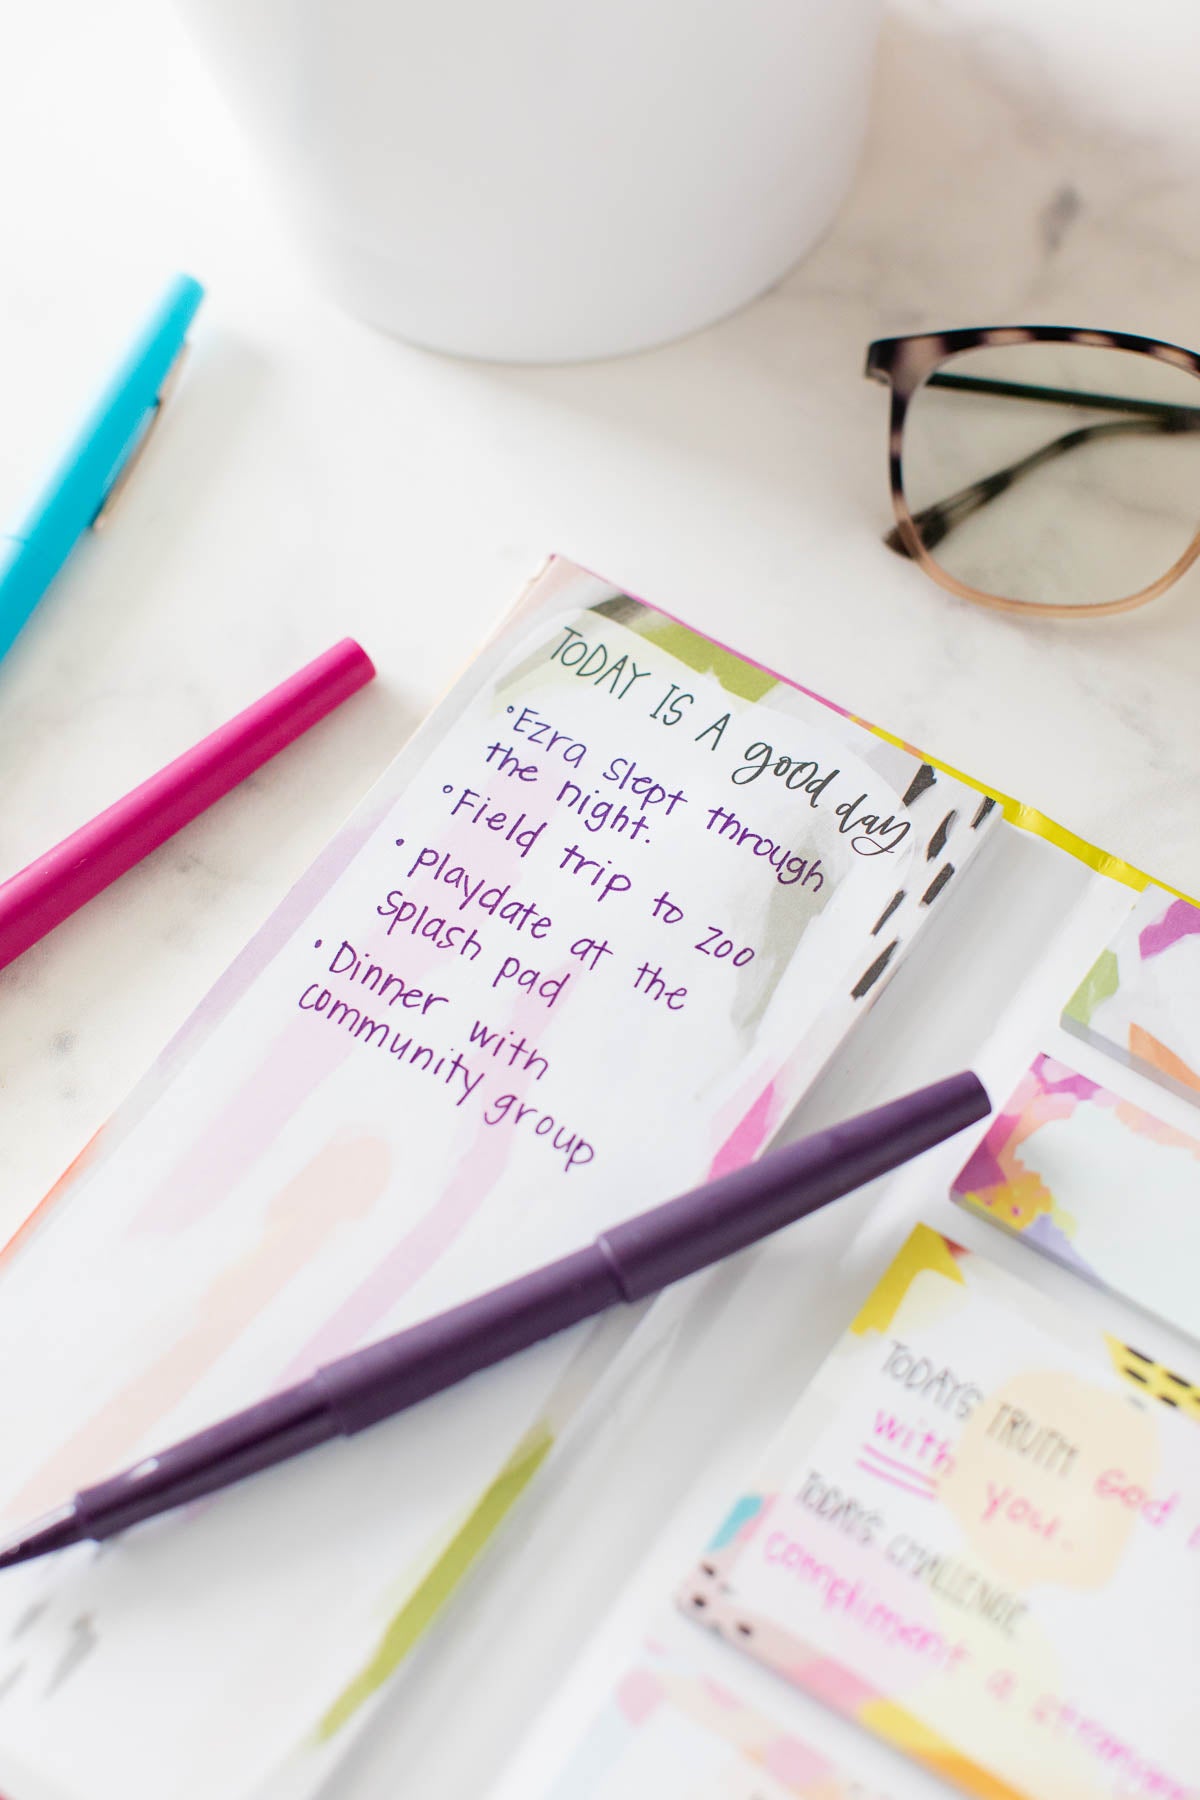 TODAY IS A good day
• Ezra slept through
the night.
• Field trip to zoo
• Playdate at the
splash pad
• Dinner with
community group
TODAY'S TRUTH God
with you.
TODAY'S CHALLENGE
compliment a